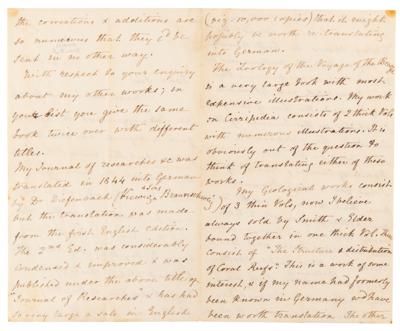 the corrections & additions are
so numerous that they cd be
sent in no other way.
With respect to your enquiry
about my other works; in
your list you give the same
book twice over with different
titles.
My Journal of researches &c was
translated in 1844 into German
by Dr Dieffenbach
but the translation was made
from the first English edition.
The 2nd Ed. was considerably
condensed & improved & was
published under the above title of
"Journal of Researches" & has had
so very large a sale in English
(viz. 10,000 copies) that it might
possibly be worth re-translating
into German.
The Zoology of the Voyage of the
is a very large book with most
expensive illustrations. My work
on Cirripedia consists of 2 thick Vols
with numerous illustrations. It is
obviously out of the question to
think of translating either of these
works.
My Geological works consist
of 3 thin Vols, now I believe
always sold by Smith & Elder
bound together in one thick Vol. They
consist of "The Structure & distribution
of Coral Reefs". This is a work of some
interest, & if my name had formerly
been known in Germany wd have
been worth translation. The other